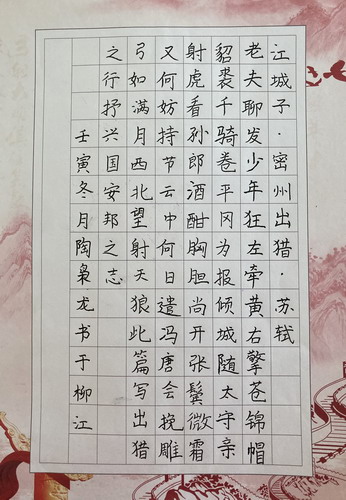 江城子·密州出猎·苏轼
老夫聊发少年狂左牵黄右擎苍锦帽
貂裘千骑卷平冈为报倾城随太守亲
射虎看孙郎酒酣胸胆尚开张鬓微霜
又何妨持节云中何日遣冯唐会挽雕
弓如满月西北望射天狼此篇写出猎
之行抒兴国安邦之志
壬寅冬月陶枭龙书于柳江